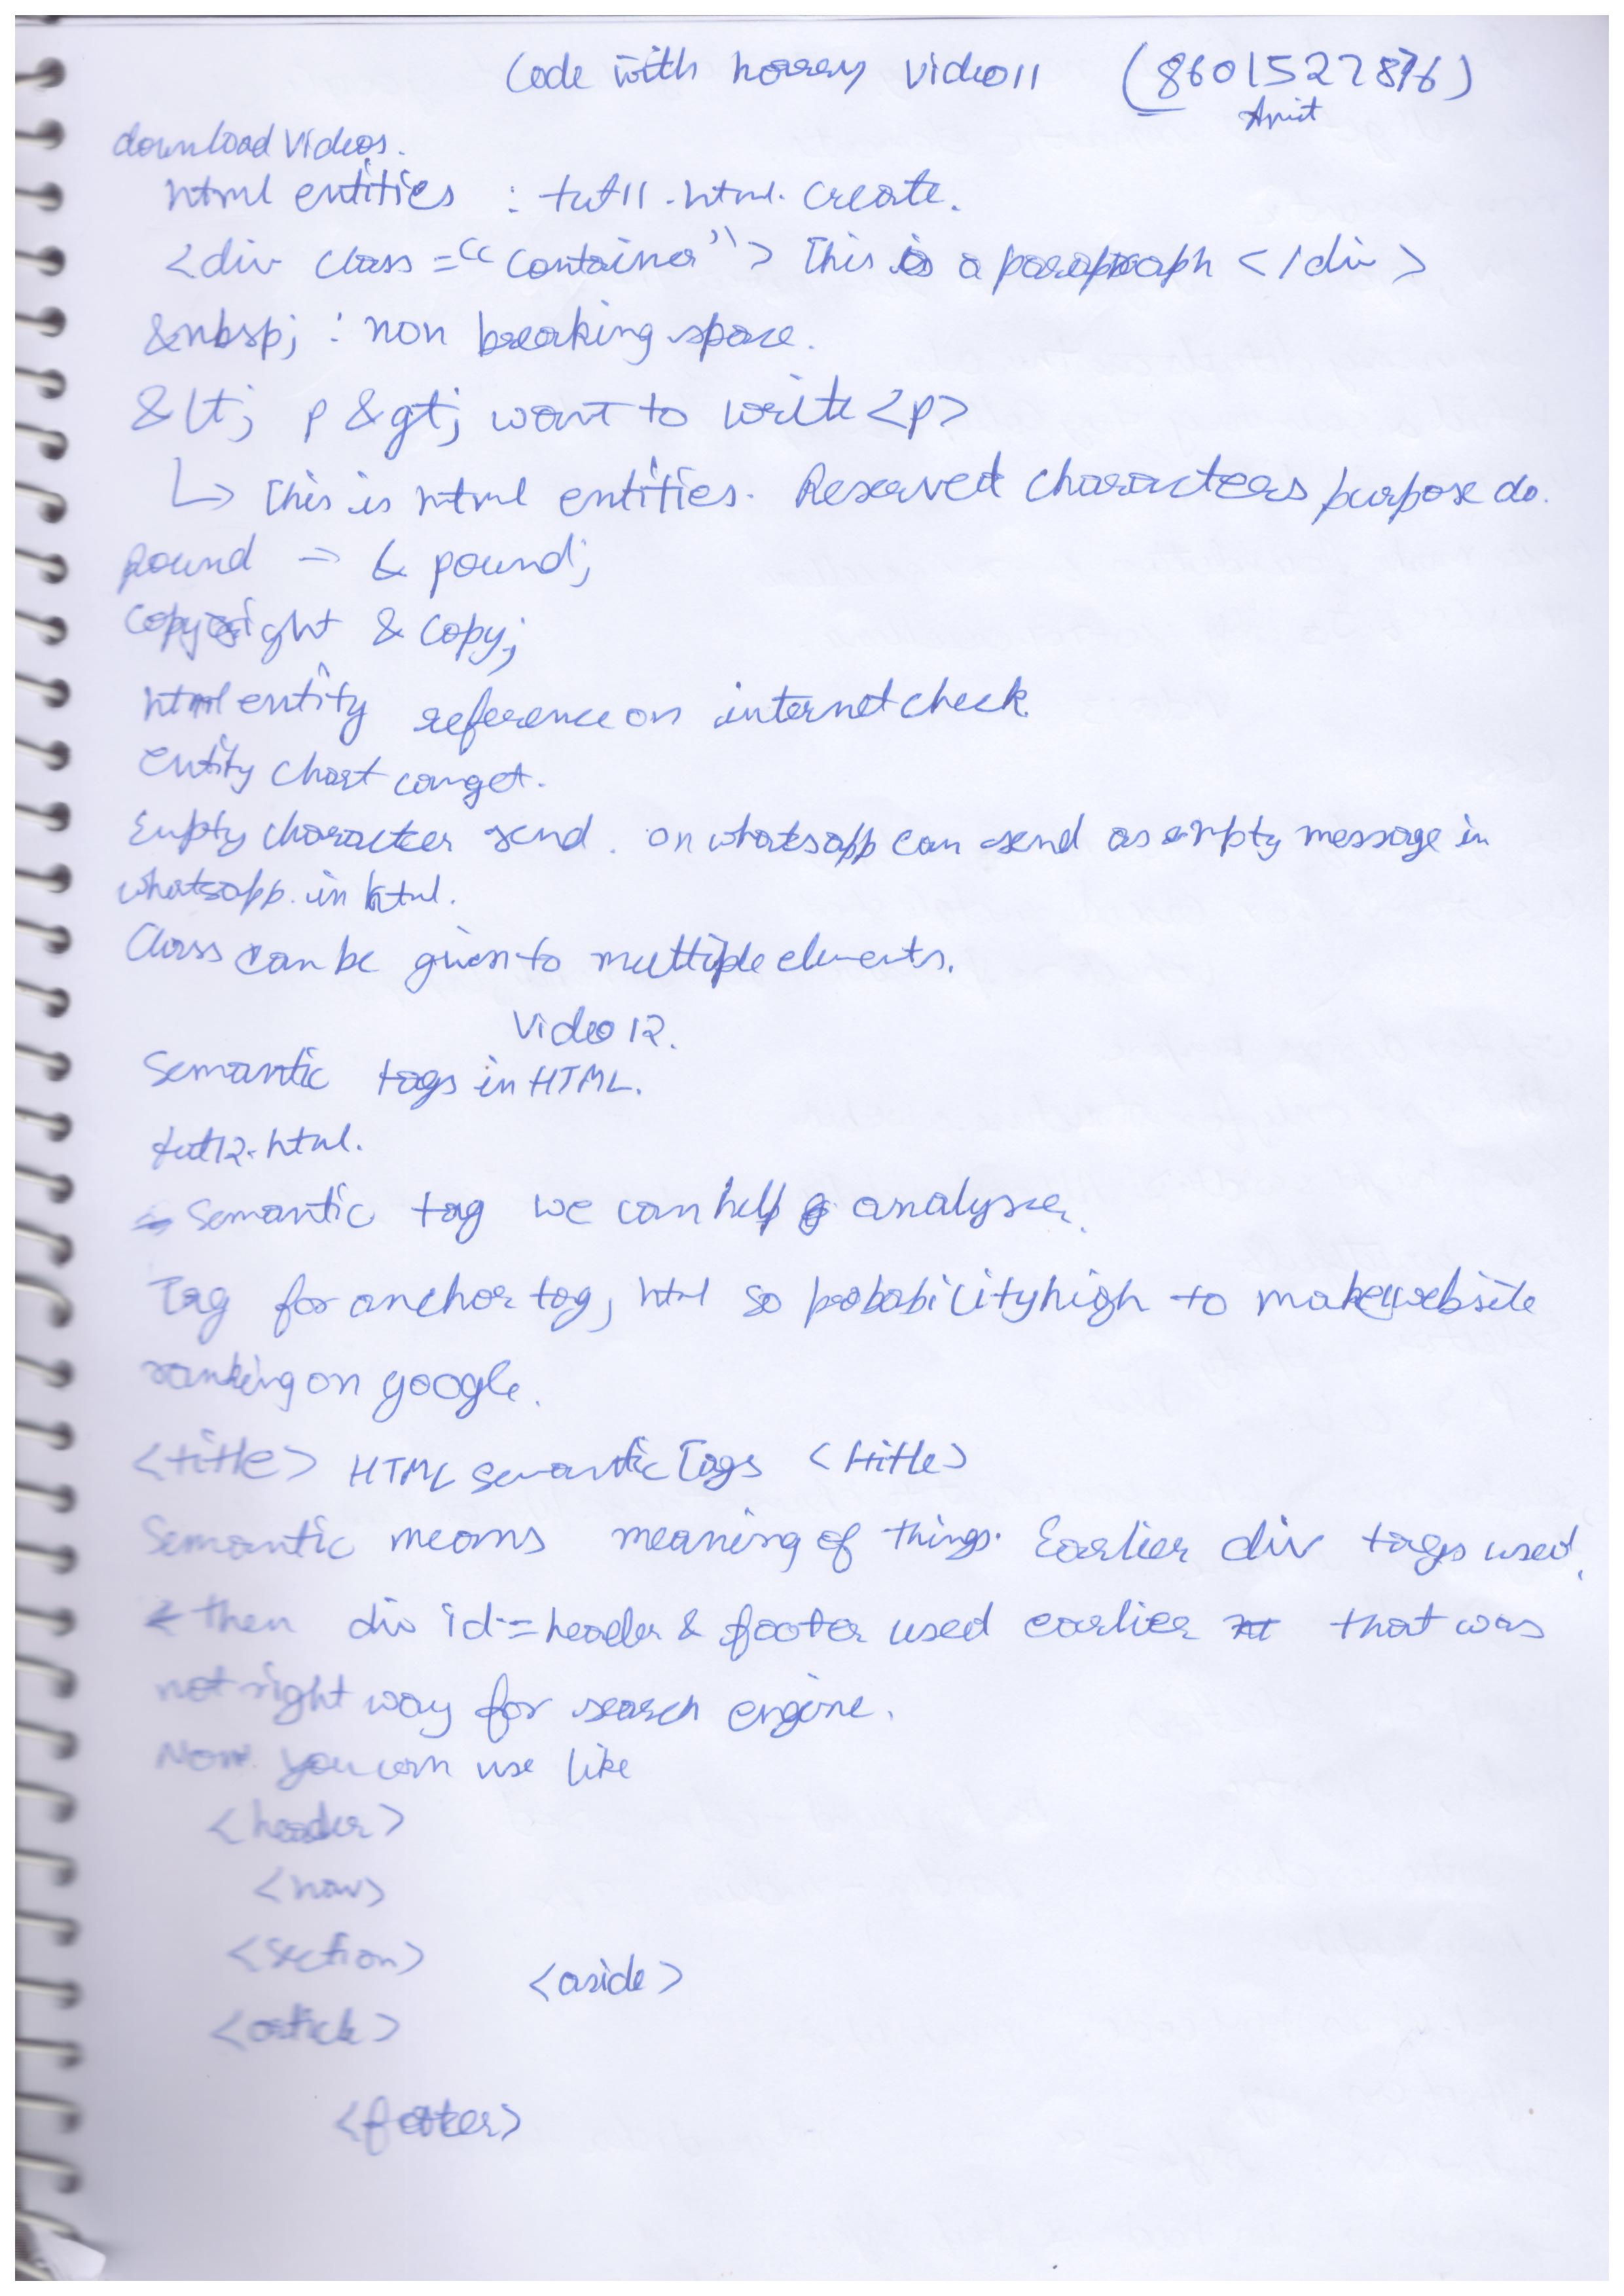 Code with harry video 11 (8601527876)
Amit
download videos.
html entities : tut11.html. create.
<div class="container"> This is a paragraph </div>
&nbsp; : non breaking space.
&lt; p &gt; want to write <p>
↳ This is html entities. Reserved characters purpose do.
pound → & pound;
copyright & copy;
html entity reference on internet check
entity chart can get.
Empty character send. on whatsapp can send as empty message in
whatsapp. in html.
Class can be given to multiple elements.
Video 12.
Semantic tags in HTML.
tut12.html.
Semantic tag we can help analyser.
Tag for anchor tag, html so probability high to make website
ranking on google.
<title> HTML Semantic Tags <title>
Semantic means meaning of things. Earlier div tags used.
then div id = header & footer used earlier that was
not right way for search engine.
Now you can use like
<header>
<nav>
<section>
<aside>
<article>
<footer>